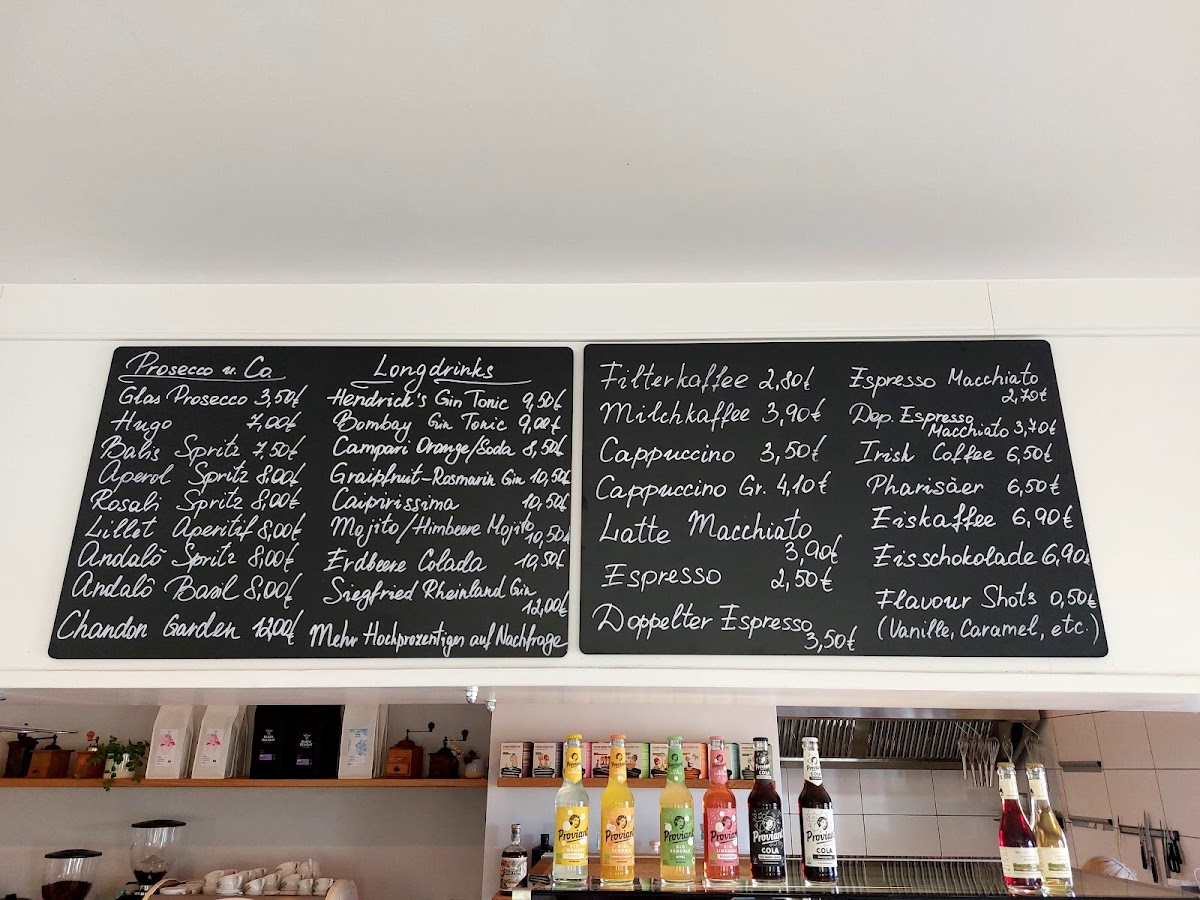 Prosecco u. Co
Glas Prosecco 3,50€
Hugo 7,00€
Balis Spritz 7,50€
Aperol Spritz 8,00€
Rosali Spritz 8,00€
Lillet Aperitif 8,00€
Andalö Spritz 8,00€
Andalö Basil 8,00€
Chandon Garden 12,00€
Longdrinks
Hendrick's Gin Tonic 9,50€
Bombay Gin Tonic 9,00€
Campari Orange/Soda 8,50€
Graipfruit-Rosmarin Gin 10,50€
Caipirissima 10,50€
Mojito/Himbeere Mojito
10,50€
Erdbeere Colada 10,50€
Siegfried Rheinland Gin
12,00€
Mehr Hochprozentiges auf Nachfrage
Filterkaffee 2,80€
Milchkaffee 3,90€
Cappuccino 3,50€
Cappuccino Gr. 4,10€
Latte Macchiato
3,90€
Espresso 2,50€
Doppelter Espresso
3,50€
Espresso Macchiato
2,70€
Dop. Espresso
Macchiato 3,70€
Irish Coffee 6,50€
Pharisäer 6,50€
Eiskaffee 6,90€
Eisschokolade 6,90€
Flavour Shots 0,50€
(Vanille, Caramel, etc.)
Proviant
Proviant
Proviant
Proviant
Proviant
COLA
Proviant
COLA